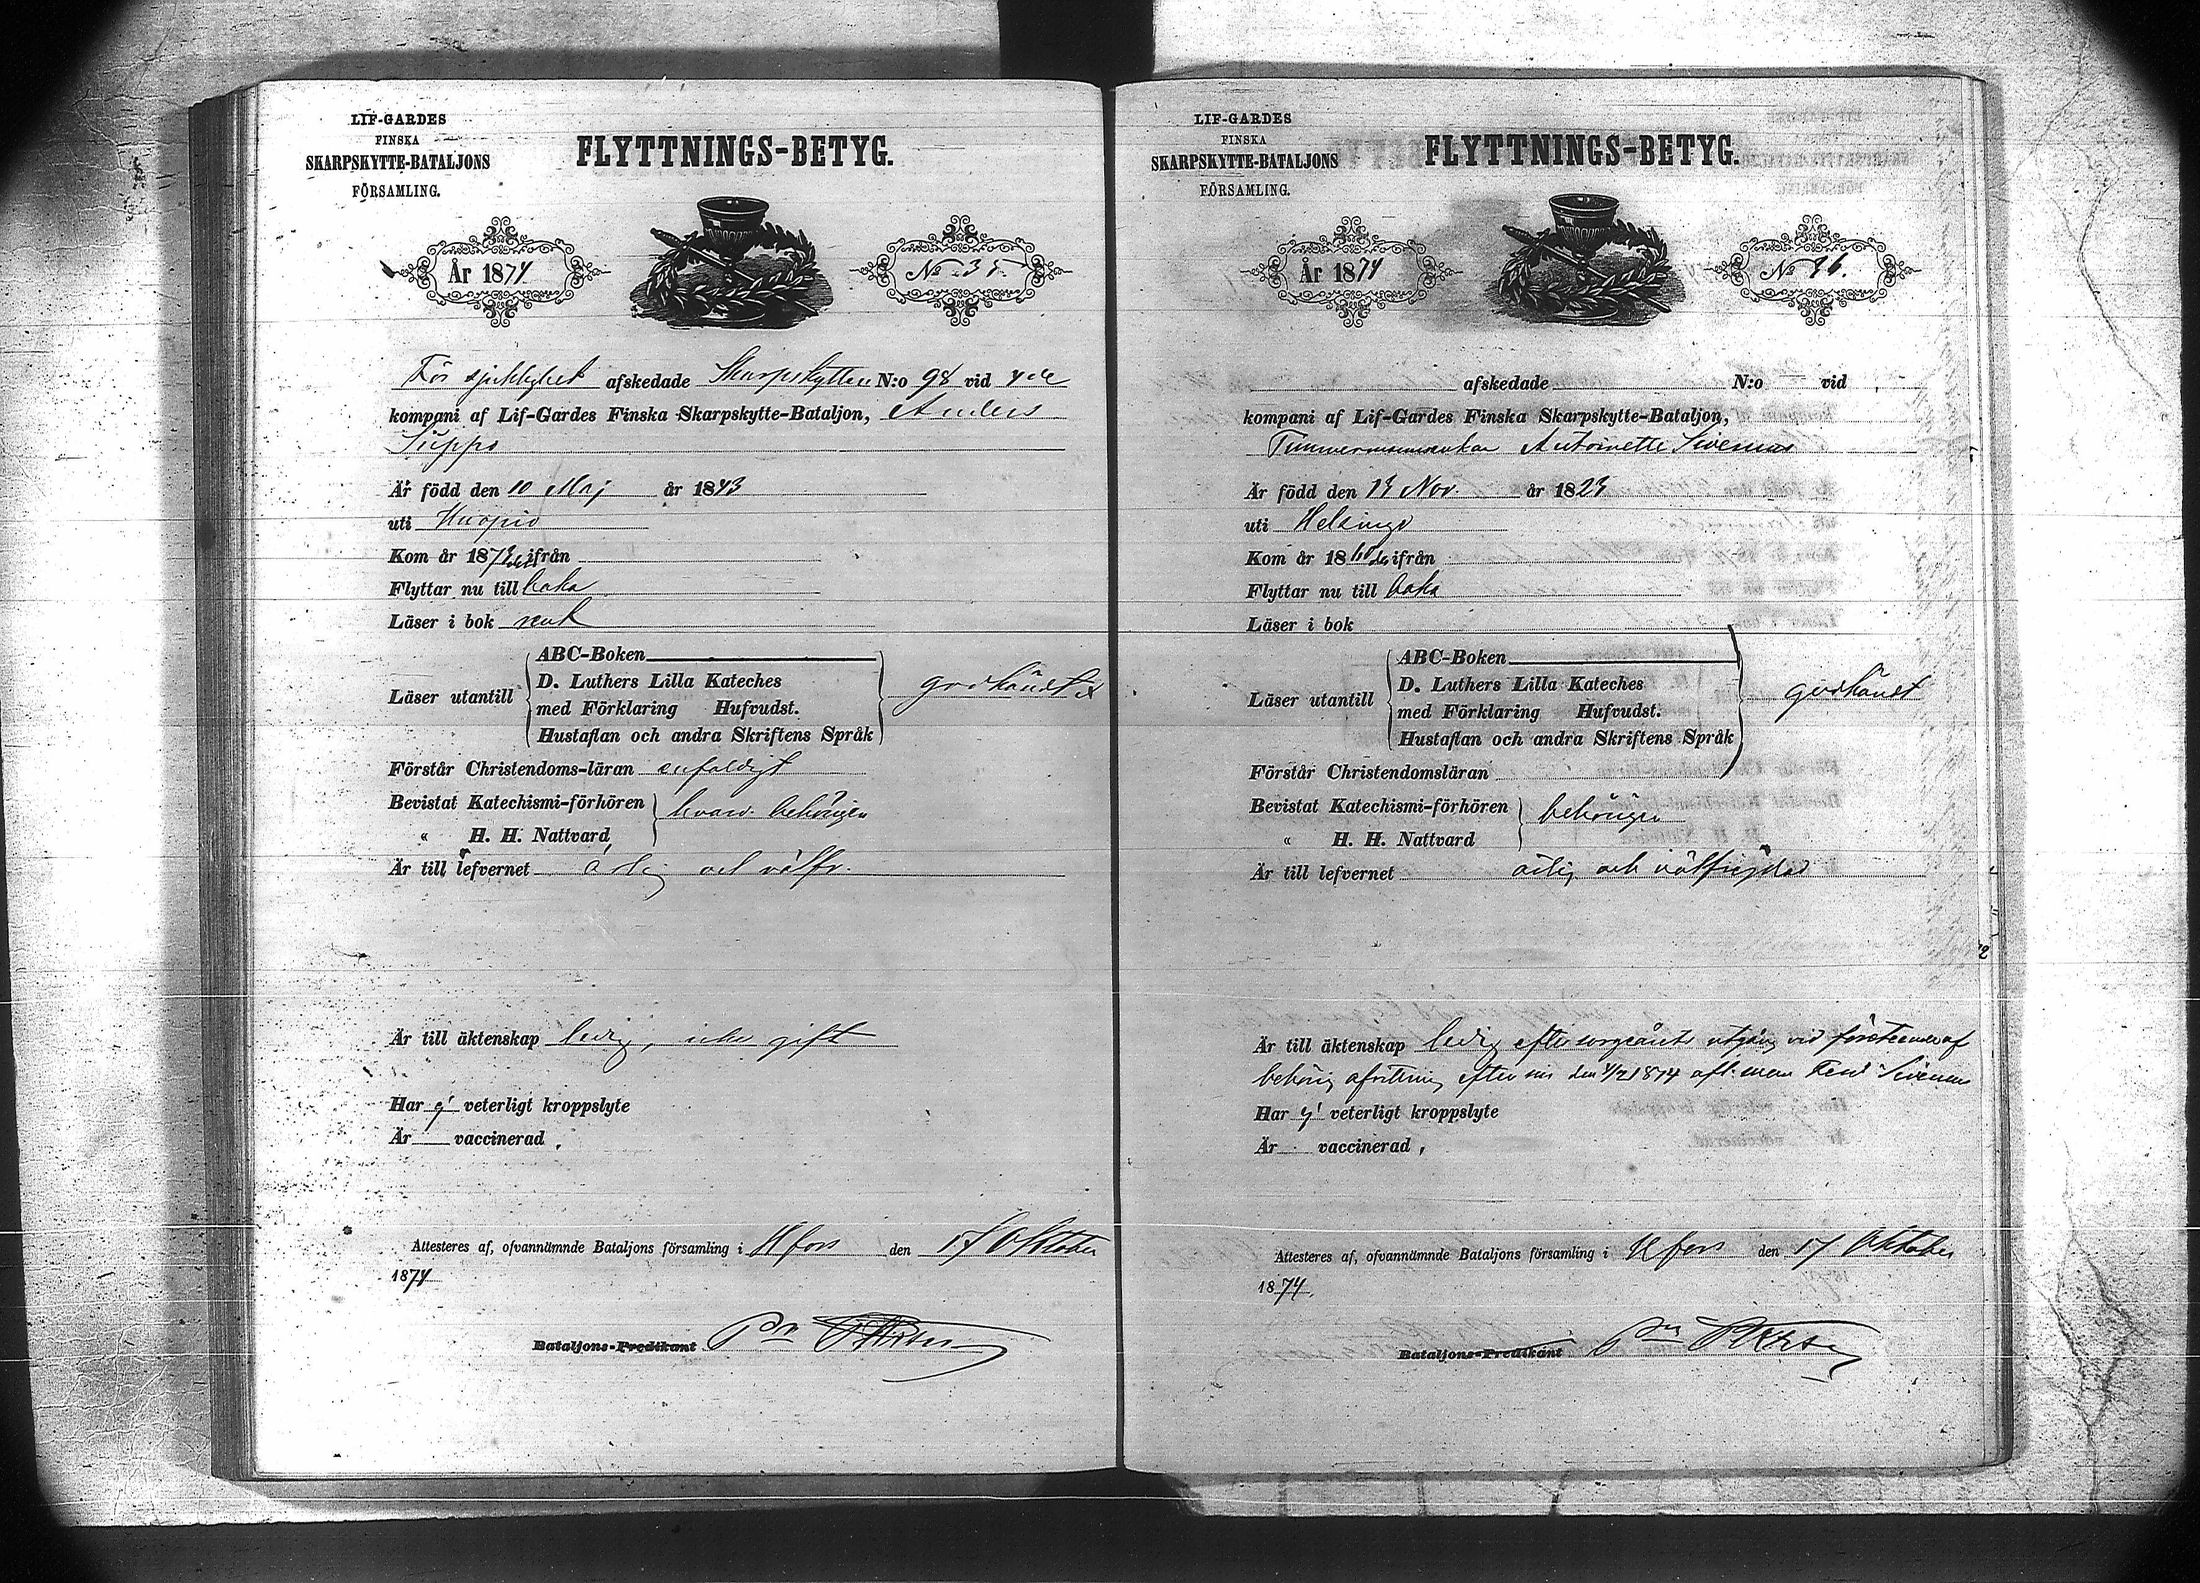 LIF-GARDES
FINSKA
SKARPSKYTTE-BATALJONS
FÖRSAMLING.
FLYTTNINGS-BETYG.
År 1874
No 35
För sjuklighet afskedade Skarpskytten N:o 98 vid 4de
kompani af Lif-Gardes Finska Skarpskytte-Bataljon, Anders
Suppo
Är född den 10 Maj år 1843
uti Kuopio
Kom år 1873 ifrån
Flyttar nu till baka
Läser i bok
Läser utantill
ABC-Boken
D. Luthers Lilla Kateches
med Förklaring Hufvudst.
Hustaflan och andra Skriftens Språk
godkändt
Förstår Christendoms-läran enfaldigt
Bevistat Katechismi-förhören
" H. H. Nattvard
behörigen
Är till lefvernet ärlig och välfr.
Är till äktenskap ledig, icke gift
Har ej veterligt kroppslyte
Är vaccinerad,
Attesteres af, ofvannämnde Bataljons församling i Hfors den 17 Oktober
1874
Bataljons-Predikant
LIF-GARDES
FINSKA
SKARPSKYTTE-BATALJONS
FÖRSAMLING.
FLYTTNINGS-BETYG.
År 1874
No 36.
afskedade N:o vid
kompani af Lif-Gardes Finska Skarpskytte-Bataljon,
Timmermansenkan Antoinette Sirenius
Är född den 13 Nov. år 1823
uti Helsinge
Kom år 1860 ifrån
Flyttar nu till baka
Läser i bok
Läser utantill
ABC-Boken
D. Luthers Lilla Kateches
med Förklaring Hufvudst.
Hustaflan och andra Skriftens Språk
godkändt
Förstår Christendomsläran
Bevistat Katechismi-förhören
" H. H. Nattvard
behörigen
Är till lefvernet ärlig och välfrejdad
Är till äktenskap ledig efter sorgeårets utgång vid företeende af
behörig afvittring efter sin den 4/2 1874 afl. man
Har ej veterligt kroppslyte
Är vaccinerad,
Attesteres af, ofvannämnde Bataljons församling i Hfors den 17 Oktober
1874.
Bataljons-Predikant